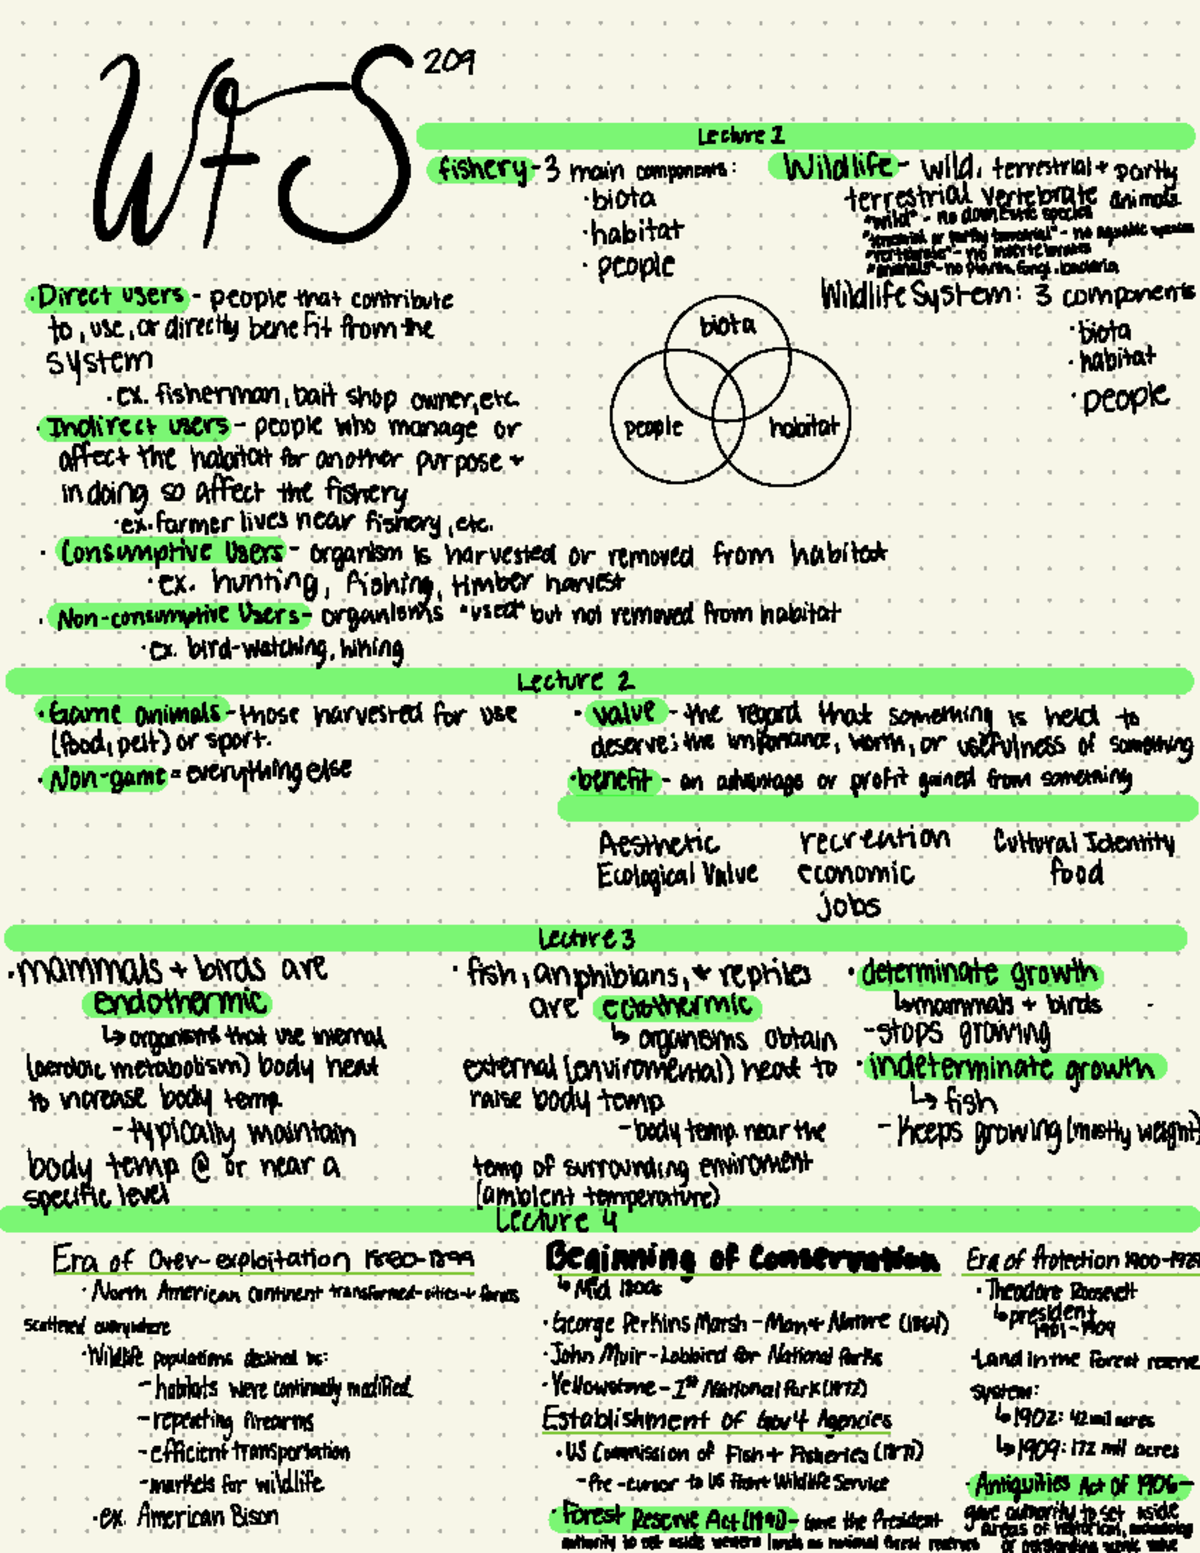 WFS 209
Lecture 1
fishery - 3 main components:
· biota
· habitat
· people
Wildlife - wild, terrestrial + partly
terrestrial vertebrate animals
"wild" - no domestic species
"terrestrial or partly terrestrial" - no aquatic species
"vertebrate" - no invertebrates
"animals" - no plants, fungi, bacteria
Wildlife System: 3 components
· biota
· habitat
· people
biota
people
habitat
· Direct users - people that contribute
to, use, or directly benefit from the
system
· ex. fisherman, bait shop owner, etc.
· Indirect users - people who manage or
affect the habitat for another purpose +
in doing so affect the fishery
· ex. farmer lives near fishery, etc.
· Consumptive Users - organism is harvested or removed from habitat
· ex. hunting, fishing, timber harvest
· Non-consumptive Users - organisms "used" but not removed from habitat
· ex. bird-watching, hiking
Lecture 2
· Game animals - those harvested for use
(food, pelt) or sport.
· Non-game = everything else
· value - the regard that something is held to
deserve; the importance, worth, or usefulness of something
· benefit - an advantage or profit gained from something
Aesthetic recreation Cultural Identity
Ecological Value economic food
jobs
Lecture 3
· mammals + birds are
endothermic
↳ organisms that use internal
(aerobic metabolism) body heat
to increase body temp.
- typically maintain
body temp @ or near a
specific level
· fish, amphibians, + reptiles
are ectothermic
↳ organisms obtain
external (enviromental) heat to
raise body temp
- body temp. near the
temp of surrounding enviroment
(ambient temperature)
· determinate growth
↳ mammals + birds
- stops growing
· indeterminate growth
↳ fish
- Keeps growing (mostly weight)
Lecture 4
Era of Over-exploitation 1800-1899
· North American continent transformed - cities + farms
scattered everywhere
· Wildlife populations declined as:
- habitats were continually modified
- repeating firearms
- efficient transportation
- markets for wildlife
· ex. American Bison
Beginning of Conservation
↳ Mid 1800s
· George Perkins Marsh - Man + Nature (1864)
· John Muir - Lobbied for National Parks
· Yellowstone - 1st National Park (1872)
Establishment of Gov't Agencies
· US Commission of Fish + Fisheries (1871)
- Pre-cursor to US Fish + Wildlife Service
· Forest Reserve Act (1891) - Gave the President
authority to set aside western lands as national forest reserves
Era of Protection 1900-
· Theodore Roosevelt
↳ president
1901-1909
· Land in the Forest reserve
system:
↳ 1902: 42 mil acres
↳ 1909: 172 mil acres
· Antiquities Act of 1906 -
gave authority to set aside
areas of historical,
or outstanding scenic value